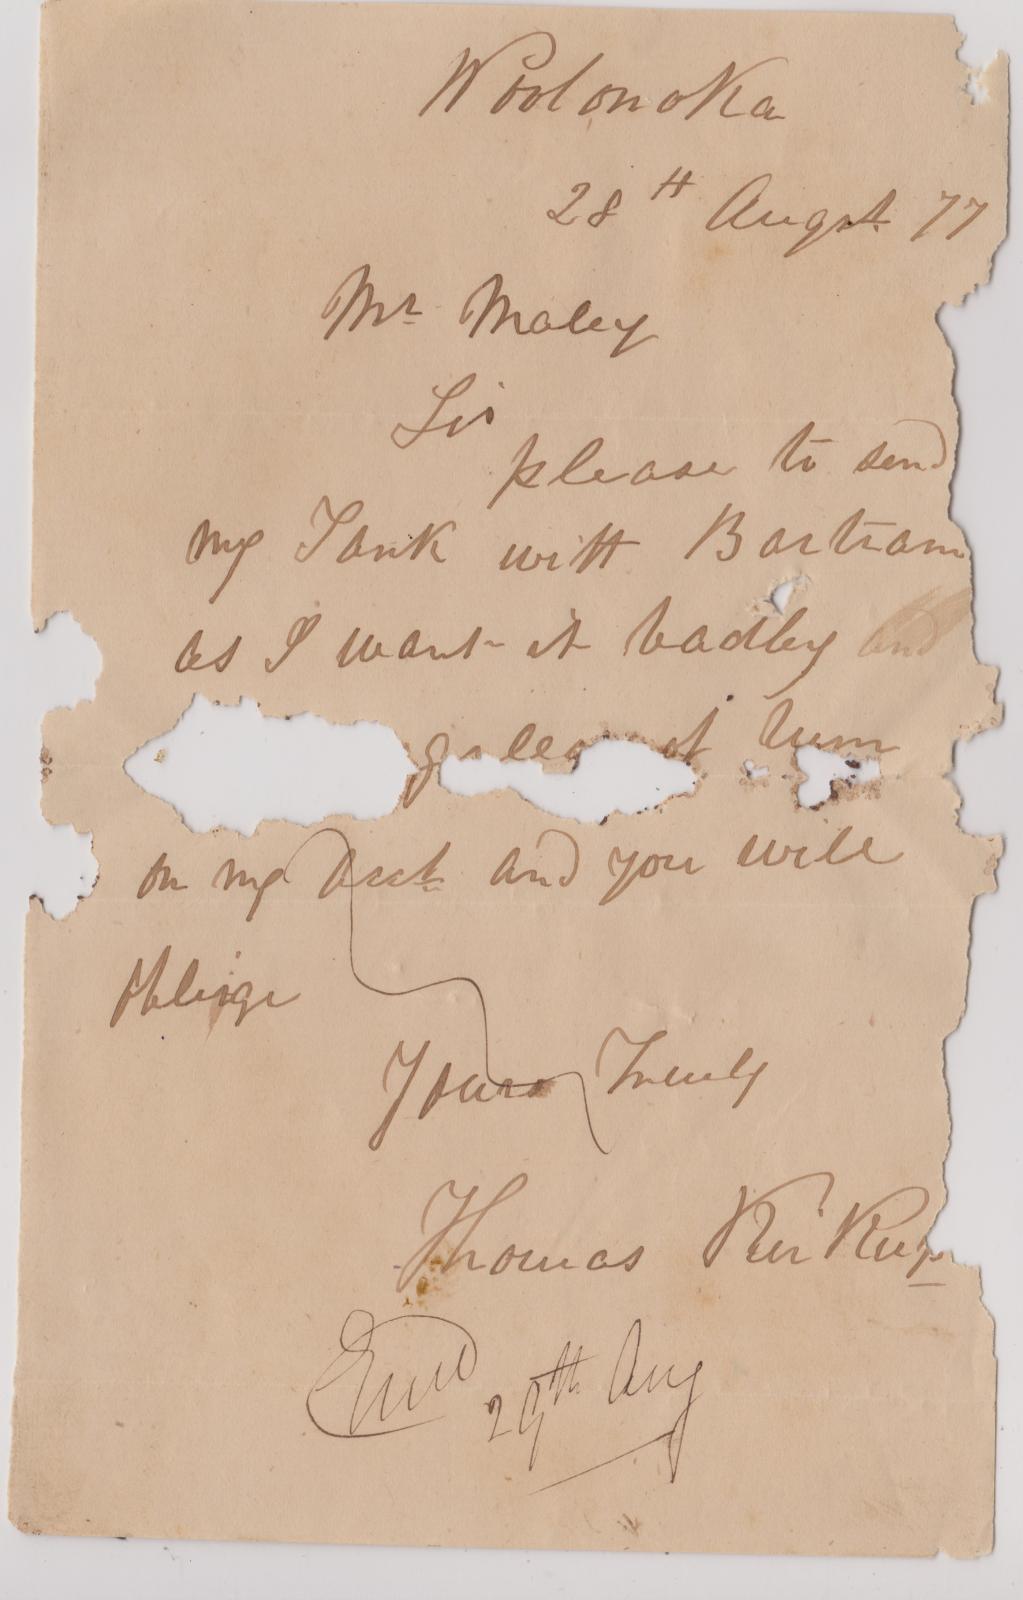 Woolonoka
28th Augst 77
Mr Maley
Sir
please to send
my Tank with Bartram
as I want it badly and
of Rum
on my Acct and you will
Oblige
Yours Truly
Thomas KirKup
29th Aug